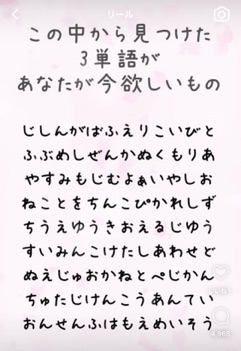 リール
この中から見つけた
3単語が
あなたが今欲しいもの
じしんがばふえりこいびと
ふぶめしぜんかぬくもりあ
やすみもじむよぁいやしお
ねことをちんこぴかれしず
ちうえゆうきおえるじゆう
すいみんこけたしあわせど
ぬえじゅおかねとぺじかん
ちゅたじけんこうあんてい
おんせんふはもえめいそう